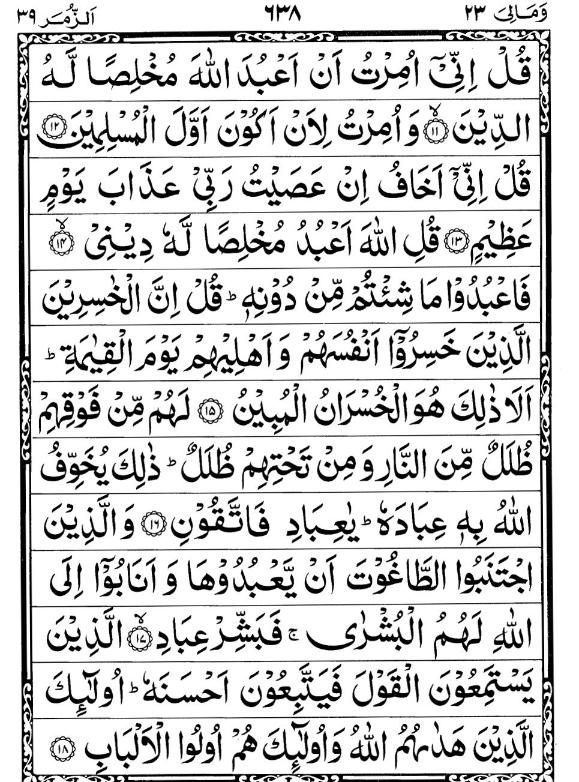 وَمَالِیَ ٢٣ ٦٣٨ اَلزُّمَر ٣٩
قُلْ اِنِّیْۤ اُمِرْتُ اَنْ اَعْبُدَ اللّٰهَ مُخْلِصًا لَّهُ
الدِّیْنَ ۙ﴿۱۱﴾ وَ اُمِرْتُ لِاَنْ اَكُوْنَ اَوَّلَ الْمُسْلِمِیْنَ ﴿۱۲﴾
قُلْ اِنِّیْۤ اَخَافُ اِنْ عَصَیْتُ رَبِّیْ عَذَابَ یَوْمٍ
عَظِیْمٍ ﴿۱۳﴾ قُلِ اللّٰهَ اَعْبُدُ مُخْلِصًا لَّهٗ دِیْنِیْ ۙ﴿۱۴﴾
فَاعْبُدُوْا مَا شِئْتُمْ مِّنْ دُوْنِهٖ ؕ قُلْ اِنَّ الْخٰسِرِیْنَ
الَّذِیْنَ خَسِرُوْۤا اَنْفُسَهُمْ وَ اَهْلِیْهِمْ یَوْمَ الْقِیٰمَةِ ؕ
اَلَا ذٰلِكَ هُوَ الْخُسْرَانُ الْمُبِیْنُ ﴿۱۵﴾ لَهُمْ مِّنْ فَوْقِهِمْ
ظُلَلٌ مِّنَ النَّارِ وَ مِنْ تَحْتِهِمْ ظُلَلٌ ؕ ذٰلِكَ یُخَوِّفُ
اللّٰهُ بِهٖ عِبَادَهٗ ؕ یٰعِبَادِ فَاتَّقُوْنِ ﴿۱۶﴾ وَ الَّذِیْنَ
اجْتَنَبُوا الطَّاغُوْتَ اَنْ یَّعْبُدُوْهَا وَ اَنَابُوْۤا اِلَی
اللّٰهِ لَهُمُ الْبُشْرٰی ۚ فَبَشِّرْ عِبَادِ ۙ﴿۱۷﴾ الَّذِیْنَ
یَسْتَمِعُوْنَ الْقَوْلَ فَیَتَّبِعُوْنَ اَحْسَنَهٗ ؕ اُولٰٓئِكَ
الَّذِیْنَ هَدٰىهُمُ اللّٰهُ وَ اُولٰٓئِكَ هُمْ اُولُوا الْاَلْبَابِ ﴿۱۸﴾